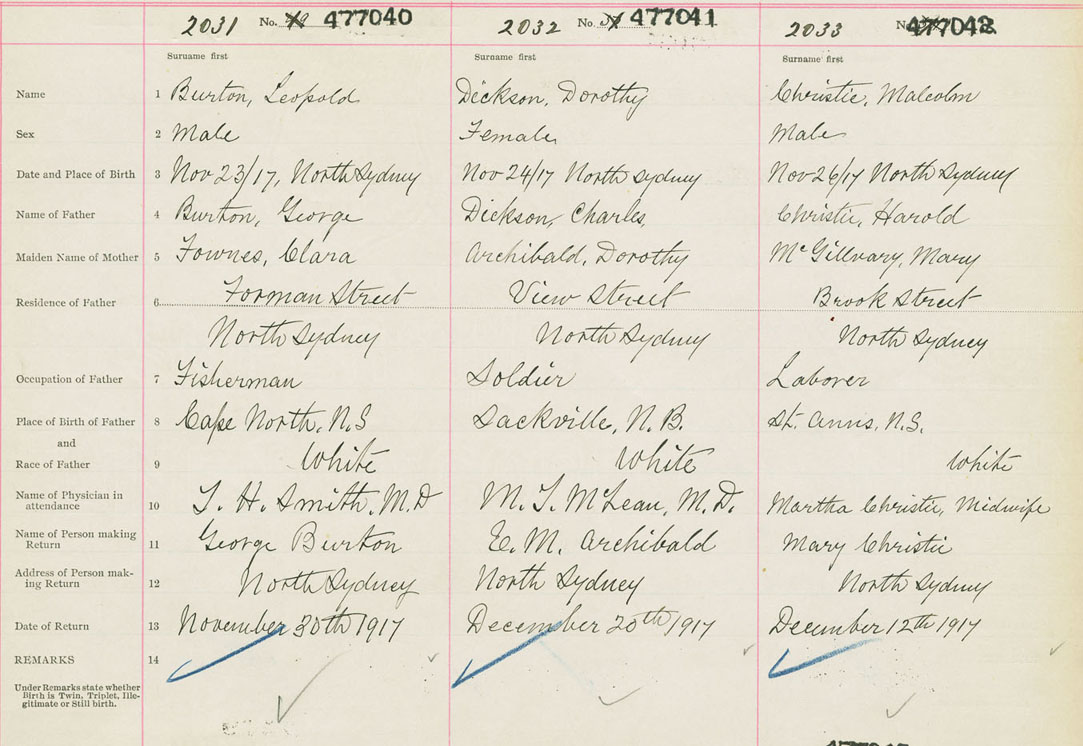 2031 No. 477040 2032 No. 477041 2033 No. 477042
Surname first Surname first Surname first
Name 1 Burton, Leopold Dickson, Dorothy Christie, Malcolm
Sex 2 Male Female Male
Date and Place of Birth 3 Nov 23/17, North Sydney Nov 24/17 North Sydney Nov 26/17 North Sydney
Name of Father 4 Burton, George Dickson, Charles, Christie, Harold
Maiden Name of Mother 5 Fownes, Clara Archibald, Dorothy McGillvary, Mary
Residence of Father 6 Forman Street View Street Brook Street
North Sydney North Sydney North Sydney
Occupation of Father 7 Fisherman Soldier Laborer
Place of Birth of Father 8 Cape North, N.S Sackville, N.B. St. Anns, N.S.
and
Race of Father 9 White White White
Name of Physician in
attendance 10 T. H. Smith, M.D M. T. McLean, M.D. Martha Christie, Midwife
Name of Person making
Return 11 George Burton E. M. Archibald Mary Christie
Address of Person mak-
ing Return 12 North Sydney North Sydney North Sydney
Date of Return 13 November 30th 1917 December 20th 1917 December 12th 1917
REMARKS 14
Under Remarks state whether
Birth is Twin, Triplet, Ille-
gitimate or Still birth.